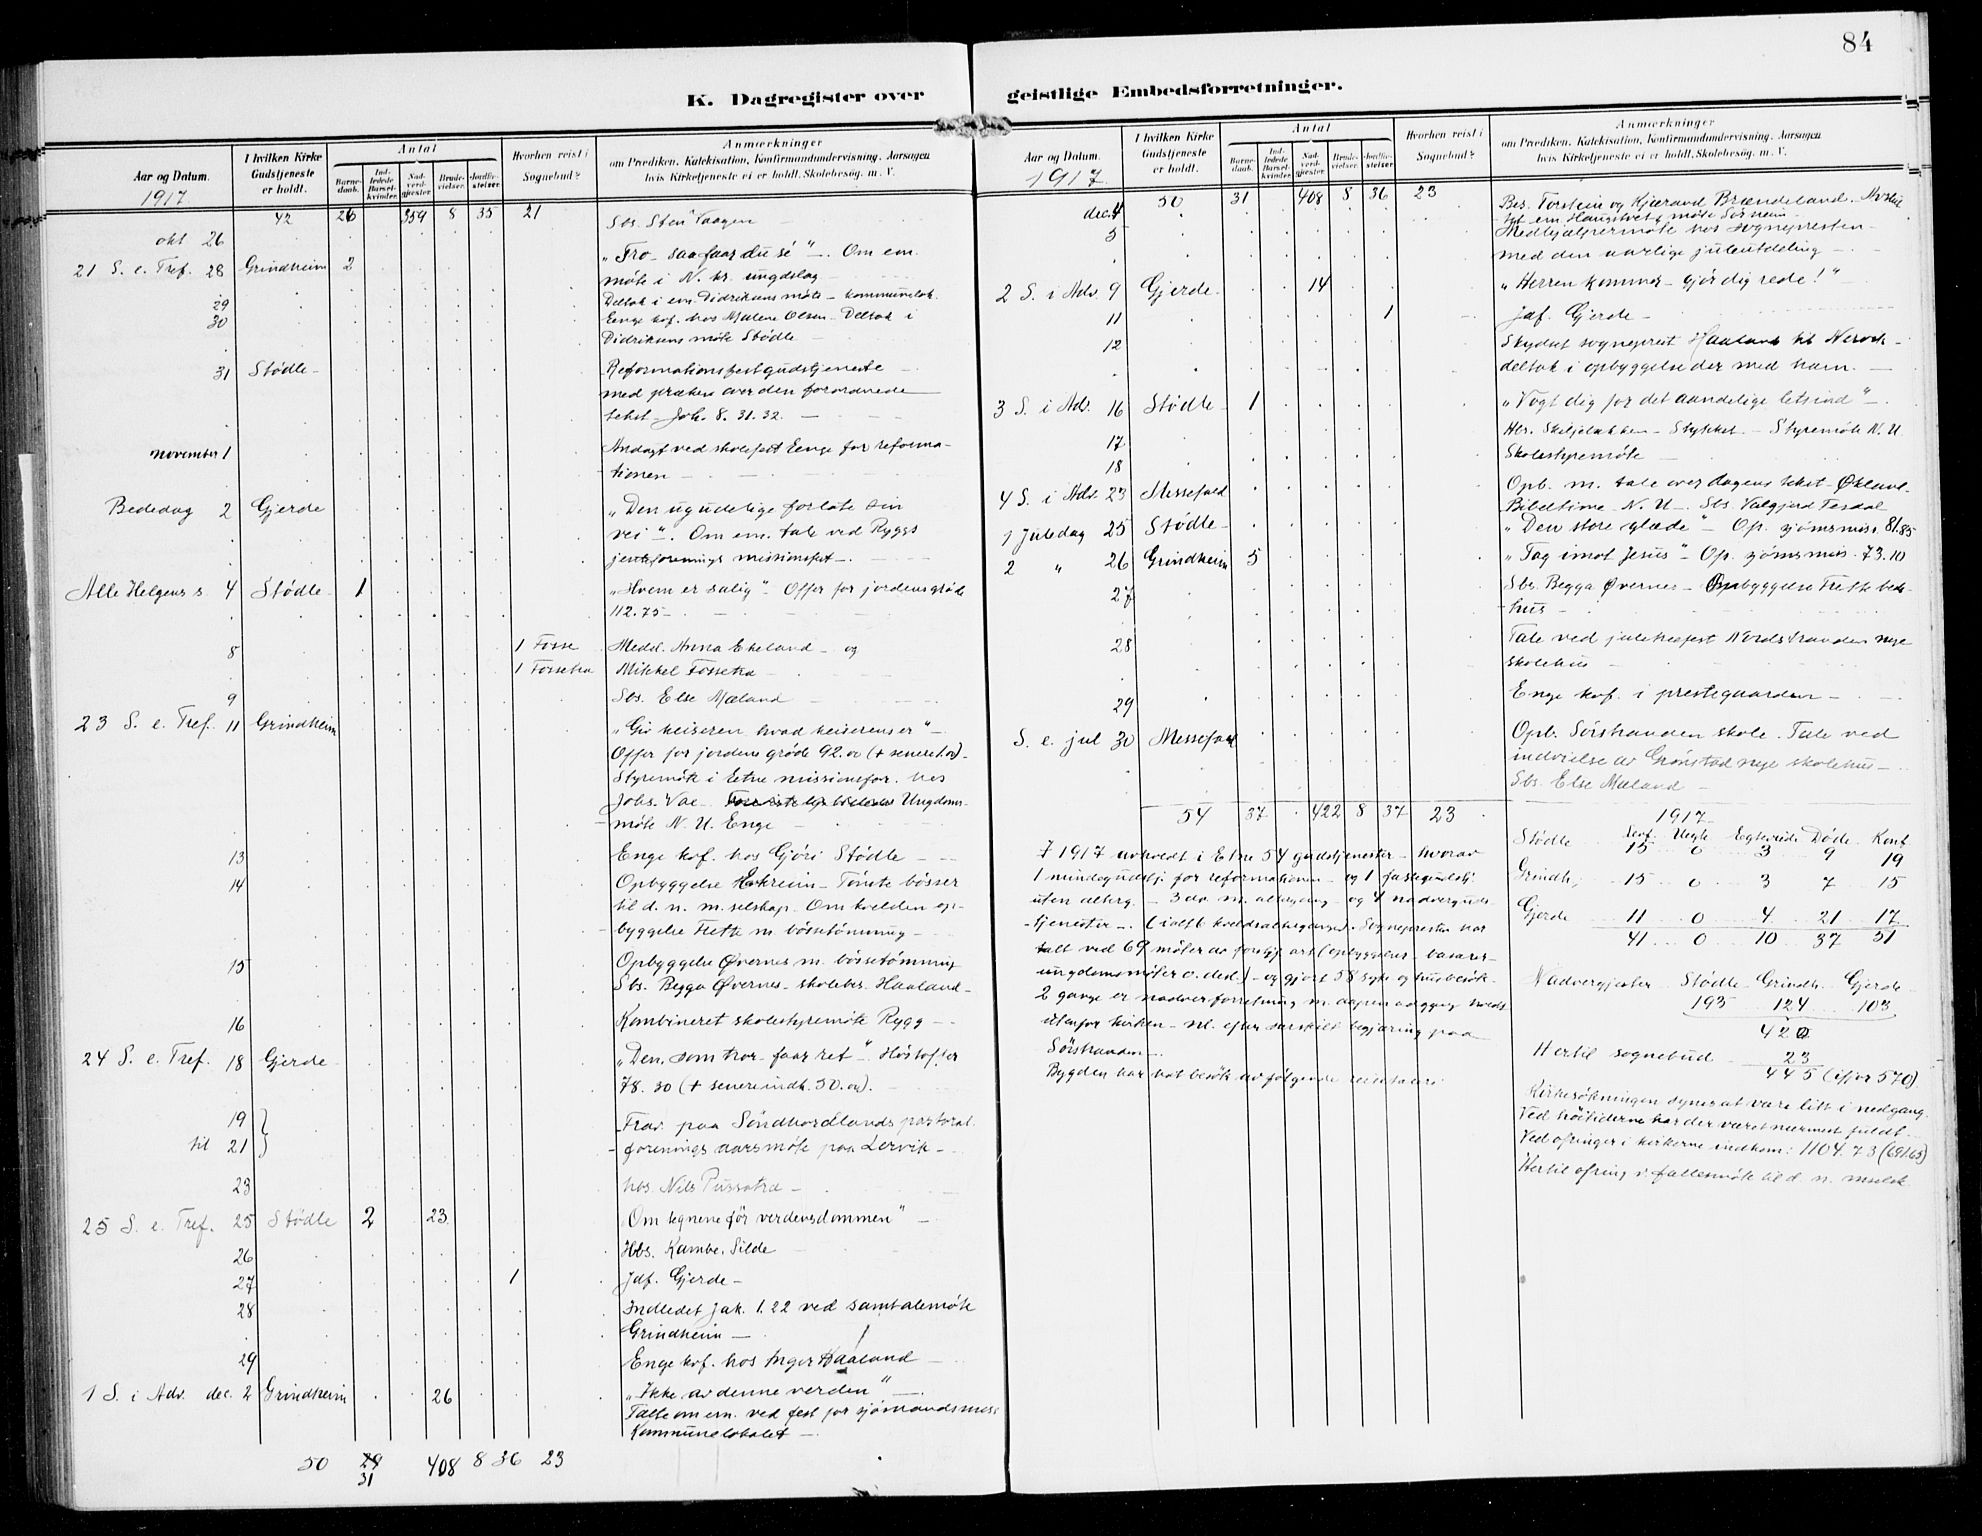 84
K. Dagregister over
Aar og Datum.
1917
I hvilken Kirke Gudstjeneste er holdt.
Antal
Barnedaab.
Indledede Barselkvinder.
Nadverdgjester
Brudevielser.
Jordfæstelser.
Hvorhen reist i Sognebud?
Anmærkninger
om Prædiken, Katekisation, Konfirmandundervisning, Aarsagen
hvis Kirketjeneste ei er holdt, Skolebesøg. m. V.
42 26 359 8 35 21
okt 26 Sbs. Sten Vaagen
21 S. e. Tref. 28 Grindheim 2 „Tro - saa faar du sé" -. Om em.
møte i N. kr. ungdslag -
29 Deltok i em. Didriksens møte - kommunelok.
30 Enge kof. hos Malene Olsen - Deltok i
Didriksens møte Stødle -
31 Stødle - Reformationsfestgudstjeneste -
med præken over den forordnede
tekst - Joh. 8. 31. 32. -
november 1 Andagt ved skolefest Enge for reforma-
tionen -
Bededag 2 Gjerde „Den ugudelige forlate sin
vei". Om em. tale ved Ryggs
jenteforenings missionsfest -.
Alle Helgens s. 4 Stødle - 1 „Hvem er salig". Offer for jordens grøde
112.75 -
8 1 Fosse Medd. Anna Ekeland - og
1 Fossetra Mikkel Fossetra -
9 Sbs. Else Mæland
23 S. e. Tref. 11 Grindheim „Giv keiseren hvad keiserens er" -
Offer for jordens grøde 92.00
Styremøte i Etne missionsfor. hos
Johs. Vae - Ungdoms-
møte N. U. Enge -
13 Enge kof. hos Gjøri Stødle -
14 Opbyggelse Ekreim - Tømte bøsser
til d. n. m. selskap. Om kvelden op-
byggelse Frette m bøssetømming -
15 Opbyggelse Øvernes m. bøssetømming
Sbs. Begga Øvernes - skolebes. Haaland -
16 Kombineret skolestyremøte Rygg -
24 S. e. Tref. 18 Gjerde - „Den, som tror - faar ret". Høstoffer
78.30 (+ senere indk. 50.00).
19 Frav. paa Søndhordlands pastoral-
til 21 forenings aarsmøte paa Lervik -
23 hbs. Nils
25 S. e. Tref. 25 Stødle 2 23 „Om tegnene før verdensdommen" -
26 Hbs. Kambe, Silde
27 1 Jdf. Gjerde -
28 Indledet Jak. 1.22 ved samtalemøte
Grindheim -
29 Enge kof. hos Inger Haaland -
1 S. i Adv. dec. 2 Grindheim 26 „Ikke av denne verden" -.
Talte om em. ved fest for sjømandsmiss
Kommunelokalet -
50 29 408 8 36 23
31
geistlige Embedsforretninger.
Aar og Datum.
1917
I hvilken Kirke Gudstjeneste er holdt.
Antal
Barnedaab.
Indledede Barselkvinder.
Nadverdgjester
Brudevielser.
Jordfæstelser
Hvorhen reist i Sognebud?
Anmærkninger
om Prædiken, Katekisation, Konfirmandundervisning, Aarsagen
hvis Kirketjeneste ei er holdt, Skolebesøg. m. V.
50 31 408 8 36 23
dec. 4 Bes. Torstein og Kjeraand Brændeland.
5 Medhjælpermøte hos sognepresten -
med den aarlige juleutdeling -
2 S. i Adv. 9 Gjerde 14 „Herren kommer - gjør dig rede!" -
11 1 Jdf. Gjerde -
12 Skydset sogneprest Haaland til
deltok i opbyggelse der med ham. -
3 S. i Adv. 16 Stødle - 1 „Vogt dig for det aandelige letsind" -
17 Styremøte N. U.
18 Skolestyremøte -
4 S. i Adv. 23 Messefald Opb. m. tale over dagens tekst -
Bibeltime - N. U. - Sbs. Valgjerd Tesdal
1 Juledag 25 Stødle - „Den store glæde" - Op. sjømsmiss. 81.85
2 „ 26 Grindheim 5 „Tag imot Jesus" - Op. sjømsmis. 73.10
27 Sbs. Begga Øvernes - Opbyggelse Frette bede-
hus -
28 Tale ved juletrefest Nordstranden nye
skolehus -
29 Enge kof. i prestegaarden -
S. e. jul 30 Messefald Opb. Sørstranden skole. Tale ved
indvielse av Grønstad nye skolehus -
Sbs. Else Mæland -
54 37 422 8 37 23
I 1917 avholdt i Etne 54 gudstjenester - hvorav
1 mindegudstj. for reformationen - og 1 fastegudstj.
uten alterg. - 3 do m. altergang - og 4 nadvergud-
tjenester -. (ialt 6 kveldsaltergange). Sognepresten har
talt ved 69 møter av forskj. art (opbyggelses - basarer -
ungdomsmøter o. desl.) - og gjort 58 syke og husbesøk -
2 gange er nadverforretning m. aapen adgang holdt
utenfor kirken - nl. efter særskilt begjæring paa
Sørstranden -.
Bygden har hat besøk av følgende
1917
Levf. Uegte Egteviede Døde Konf
Stødle 15 0 3 9 19
Grindh. 15 0 3 7 15
Gjerde 11 0 4 21 17
41 0 10 37 51
Nadvergjester Stødle Grindh. Gjerde
195 124 103
422
Hertil sognebud 23
445 (ifjor 570)
Kirkesøkningen synes at være litt i nedgang.
Ved høitiderne har der været nærmest fuldt -
Ved ofringer i kirkerne indkom: 1104.73 (691.65)
Hertil ofring v. fællesmøte til d. n. mselsk.